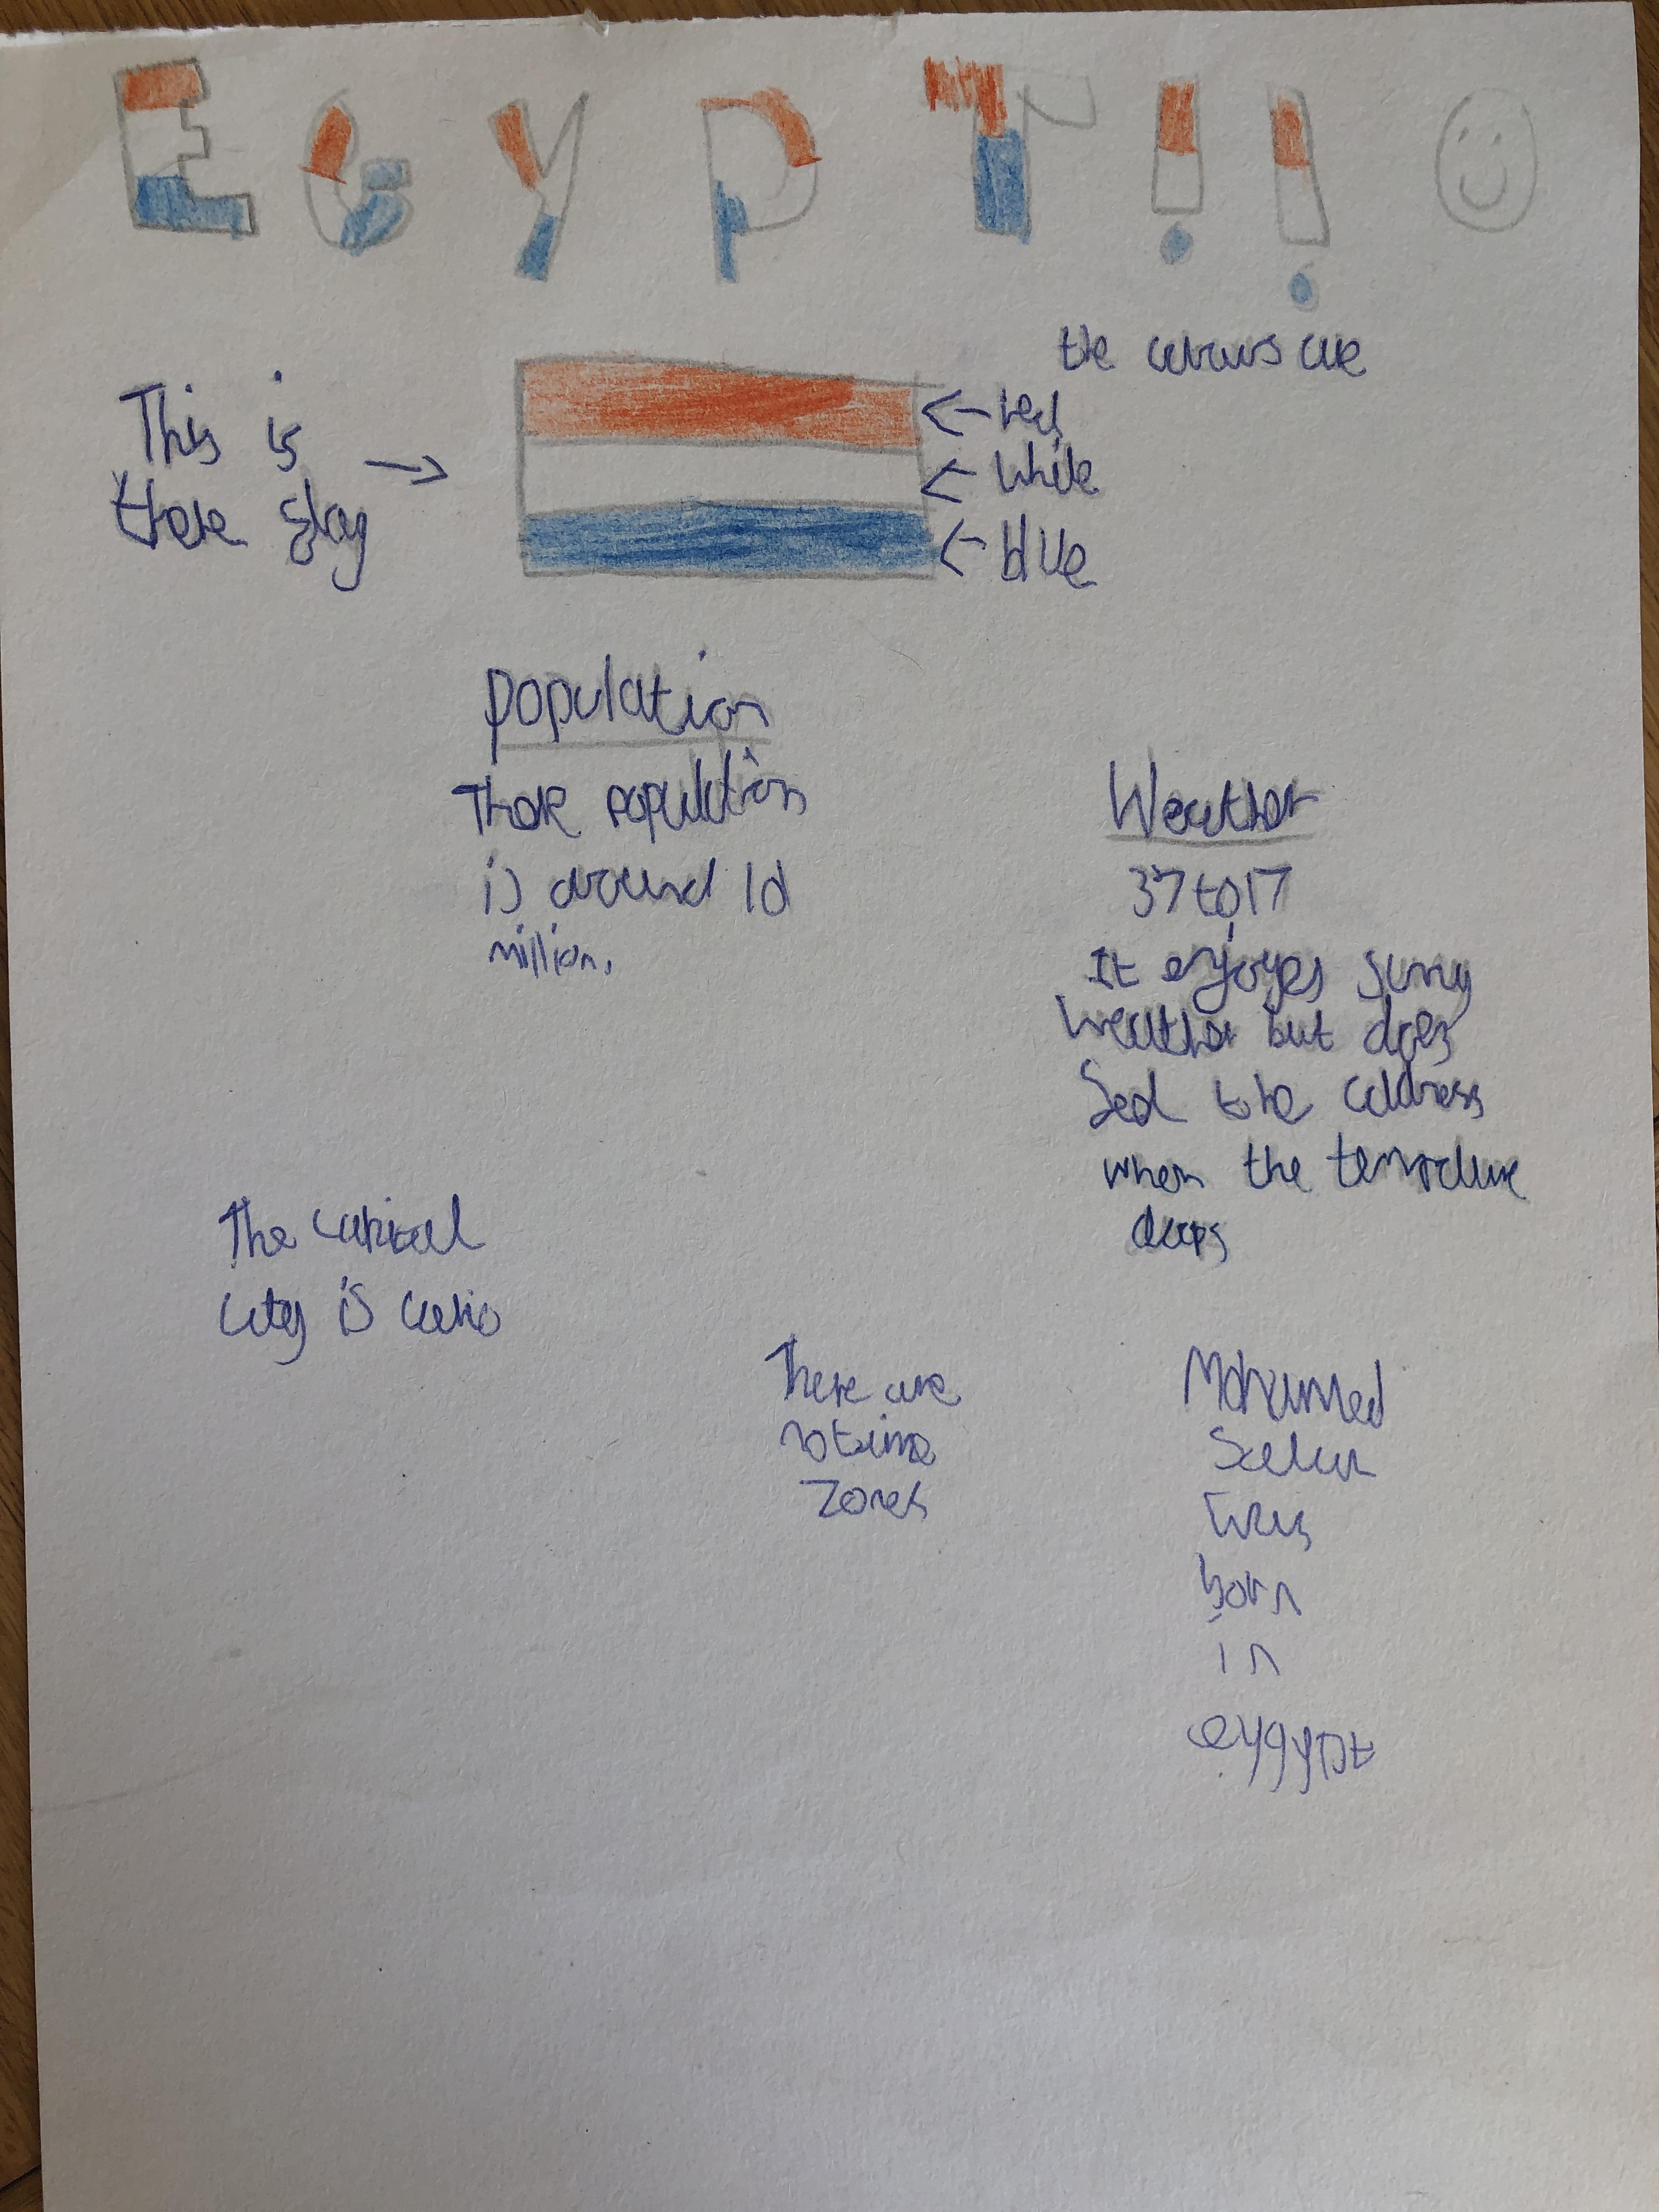 EGYPT!!
the colours are
This is
there flag
red
white
blue
population
There population
is around 10
million.
Weather
37 to 17
It enjoyes sunny
weather but does
to be coldness
when the
drops
The capital
city is
There are
no time
zones
Mohammed
Salah
was
born
in
eygypt